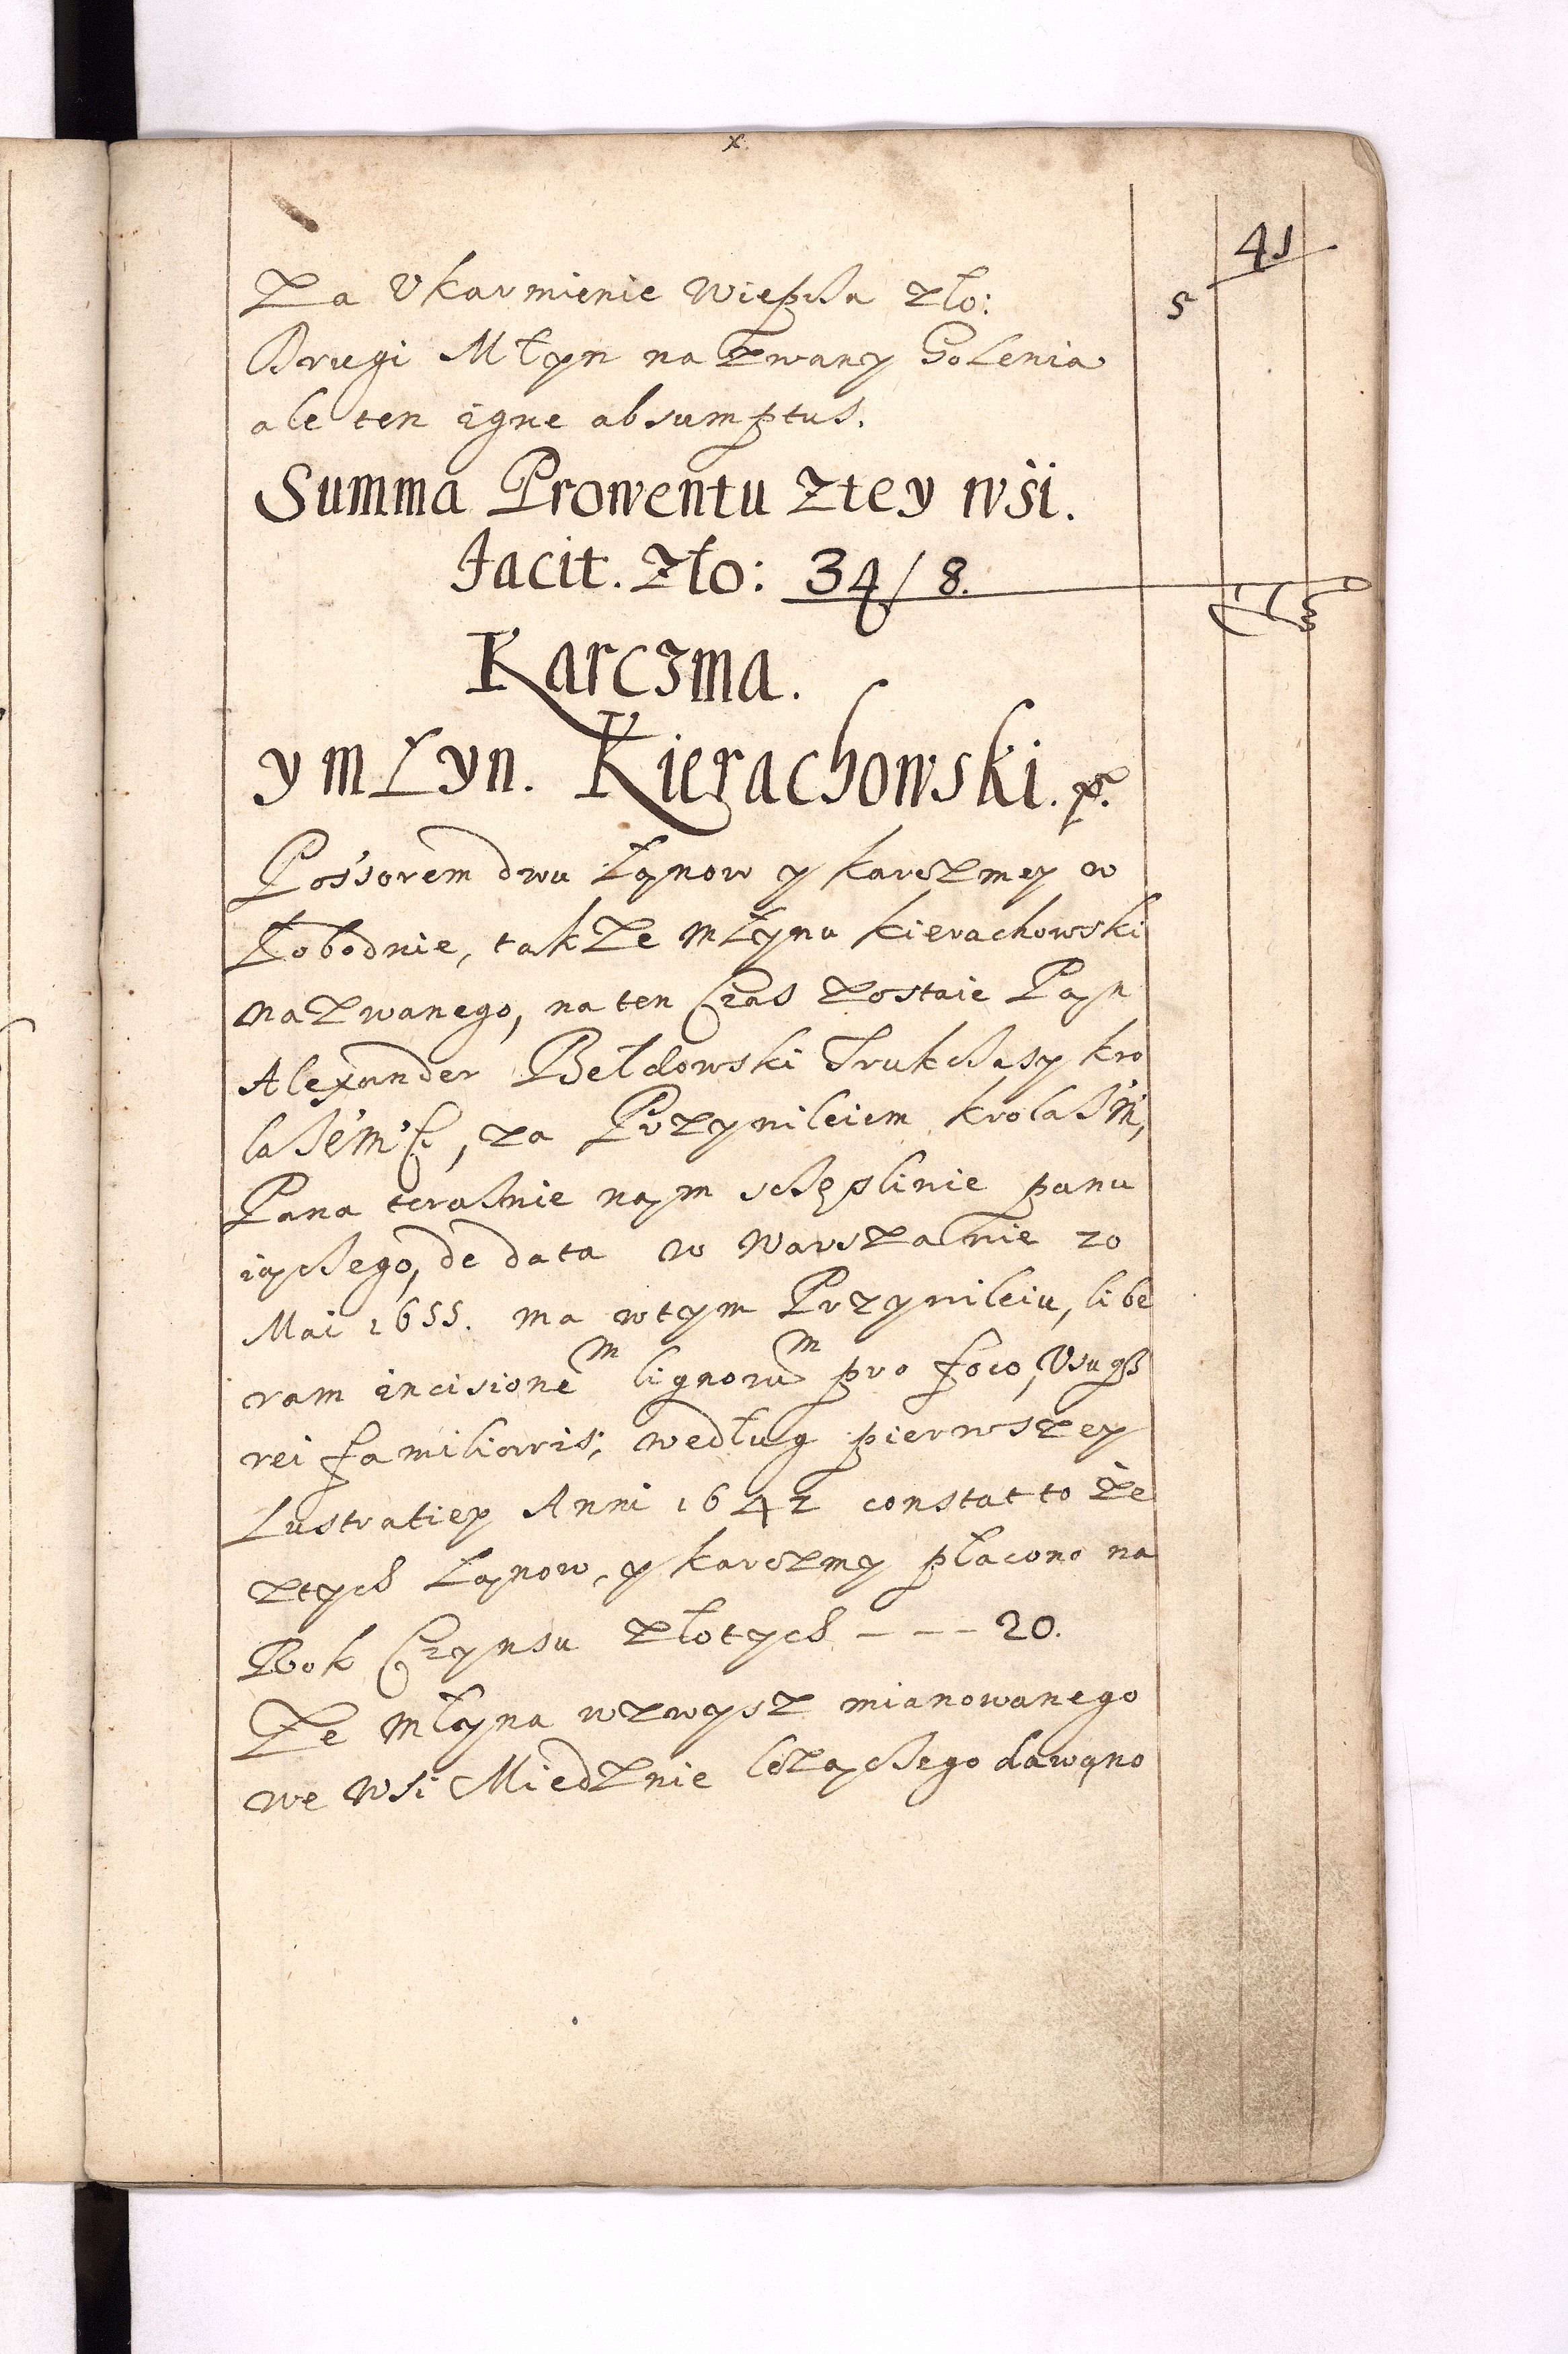 x
41
Za Vkarmienie Wieprza zło: 5
Drugi Młyn nazwany Golenia
ale ten igne absumptus.
Summa Prowentu ztey wsi.
facit. zło: 34/8.
Karczma.
y młyn. Kierachowski.
Possorem dwu Łanow y karczmey w
Łobodnie, takze młyna kierachowski
nazwanego, na ten Czas zostaie Pan
Alexander Bełdowski Trukczasy kro
la JéMC, za Przywileiem krola JM,
Pana teraznie nam sczęsliwie panu
iączego, de data w Warszawie 20
Mai 1655. ma wtym Przywileiu, libe
ram incisionem lignorum pro foco, Vsuqz
rei familiaris; według pierwszey
Lustratiey Anni 1642 constat to że
ztych Łanow, y karczmy płacono na
Rok Czynsu złotych - - - 20.
Ze młyna wzwysz mianowanego
we wsi Miedznie lezączego dawano